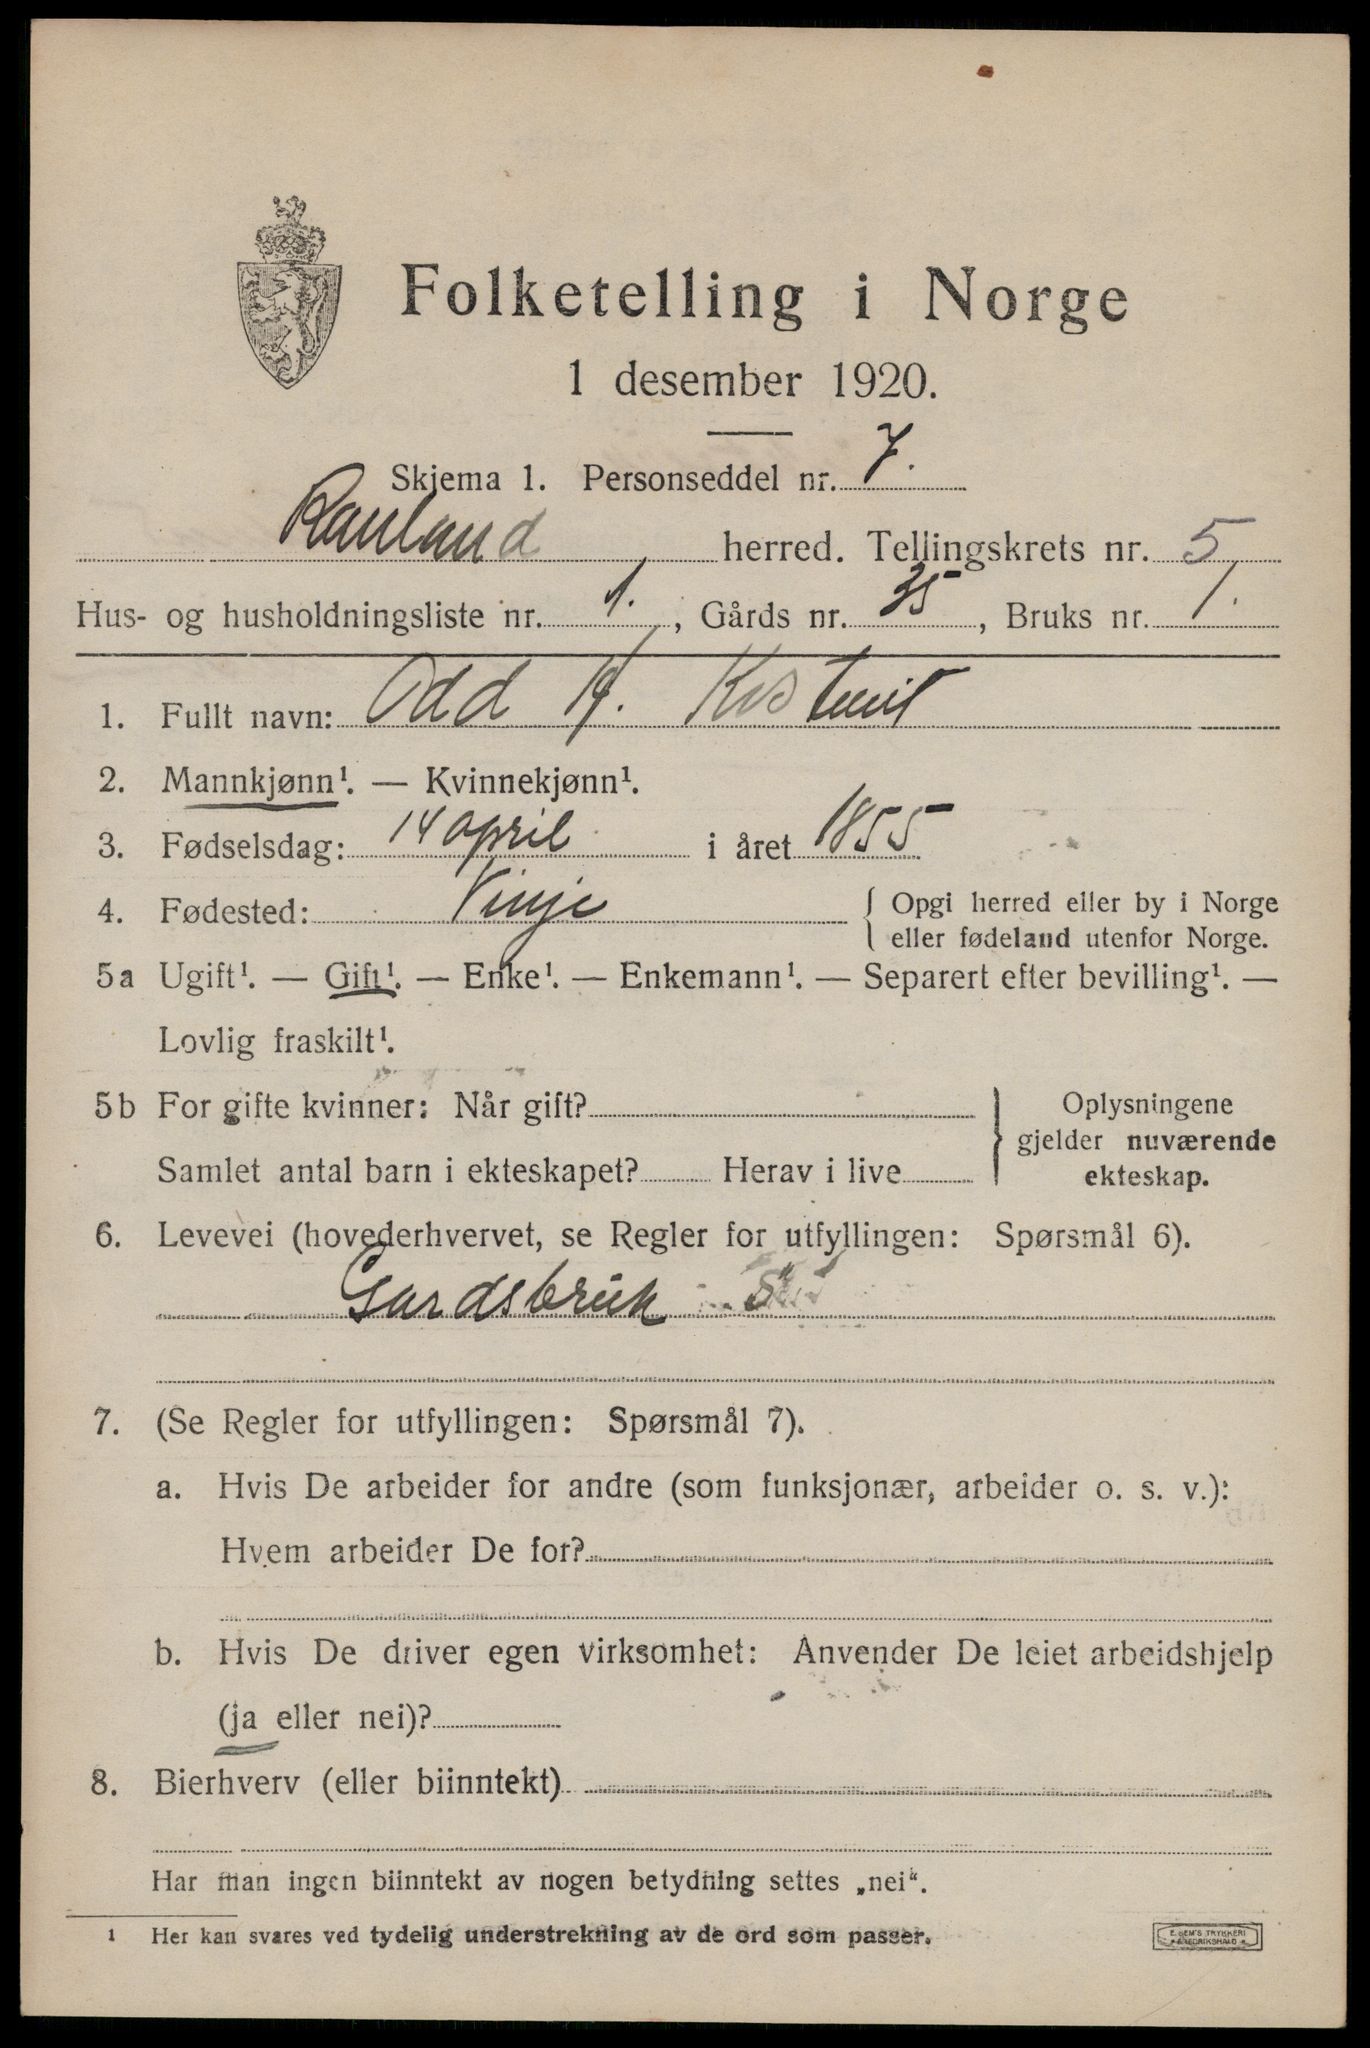 Folketelling i Norge
1 desember 1920.
Skjema 1. Personseddel nr. 7.
Rauland herred. Tellingskrets nr. 5
Hus- og husholdningsliste nr. 1., Gårds nr. 35, Bruks nr. 1.
1. Fullt navn: Odd
2. Mannkjønn¹. — Kvinnekjønn¹.
3. Fødselsdag: 14 april i året 1855
4. Fødested: Vinje { Opgi herred eller by i Norge
eller fødeland utenfor Norge.
5a Ugift¹. — Gift¹. — Enke¹. — Enkemann¹. — Separert efter bevilling¹. —
Lovlig fraskilt¹.
5b For gifte kvinner: Når gift? } Oplysningene
gjelder nuværende
Samlet antal barn i ekteskapet? Herav i live ekteskap.
6. Levevei (hovederhvervet, se Regler for utfyllingen: Spørsmål 6).
Gardsbruk S
7. (Se Regler for utfyllingen: Spørsmål 7).
a. Hvis De arbeider for andre (som funksjonær, arbeider o. s. v.):
Hvem arbeider De for?
b. Hvis De driver egen virksomhet: Anvender De leiet arbeidshjelp
(ja eller nei)?
8. Bierhverv (eller biinntekt)
Har man ingen biinntekt av nogen betydning settes „nei“.
1 Her kan svares ved tydelig understrekning av de ord som passer.
E. SEM'S TRYKKERI
FREDRIKSHALD